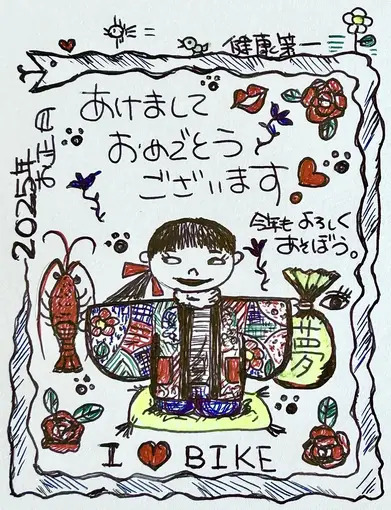 健康第一
2025年お正月
あけまして
おめでとう
ございます
今年もよろしく
あそぼう。
夢
I ♥ BIKE